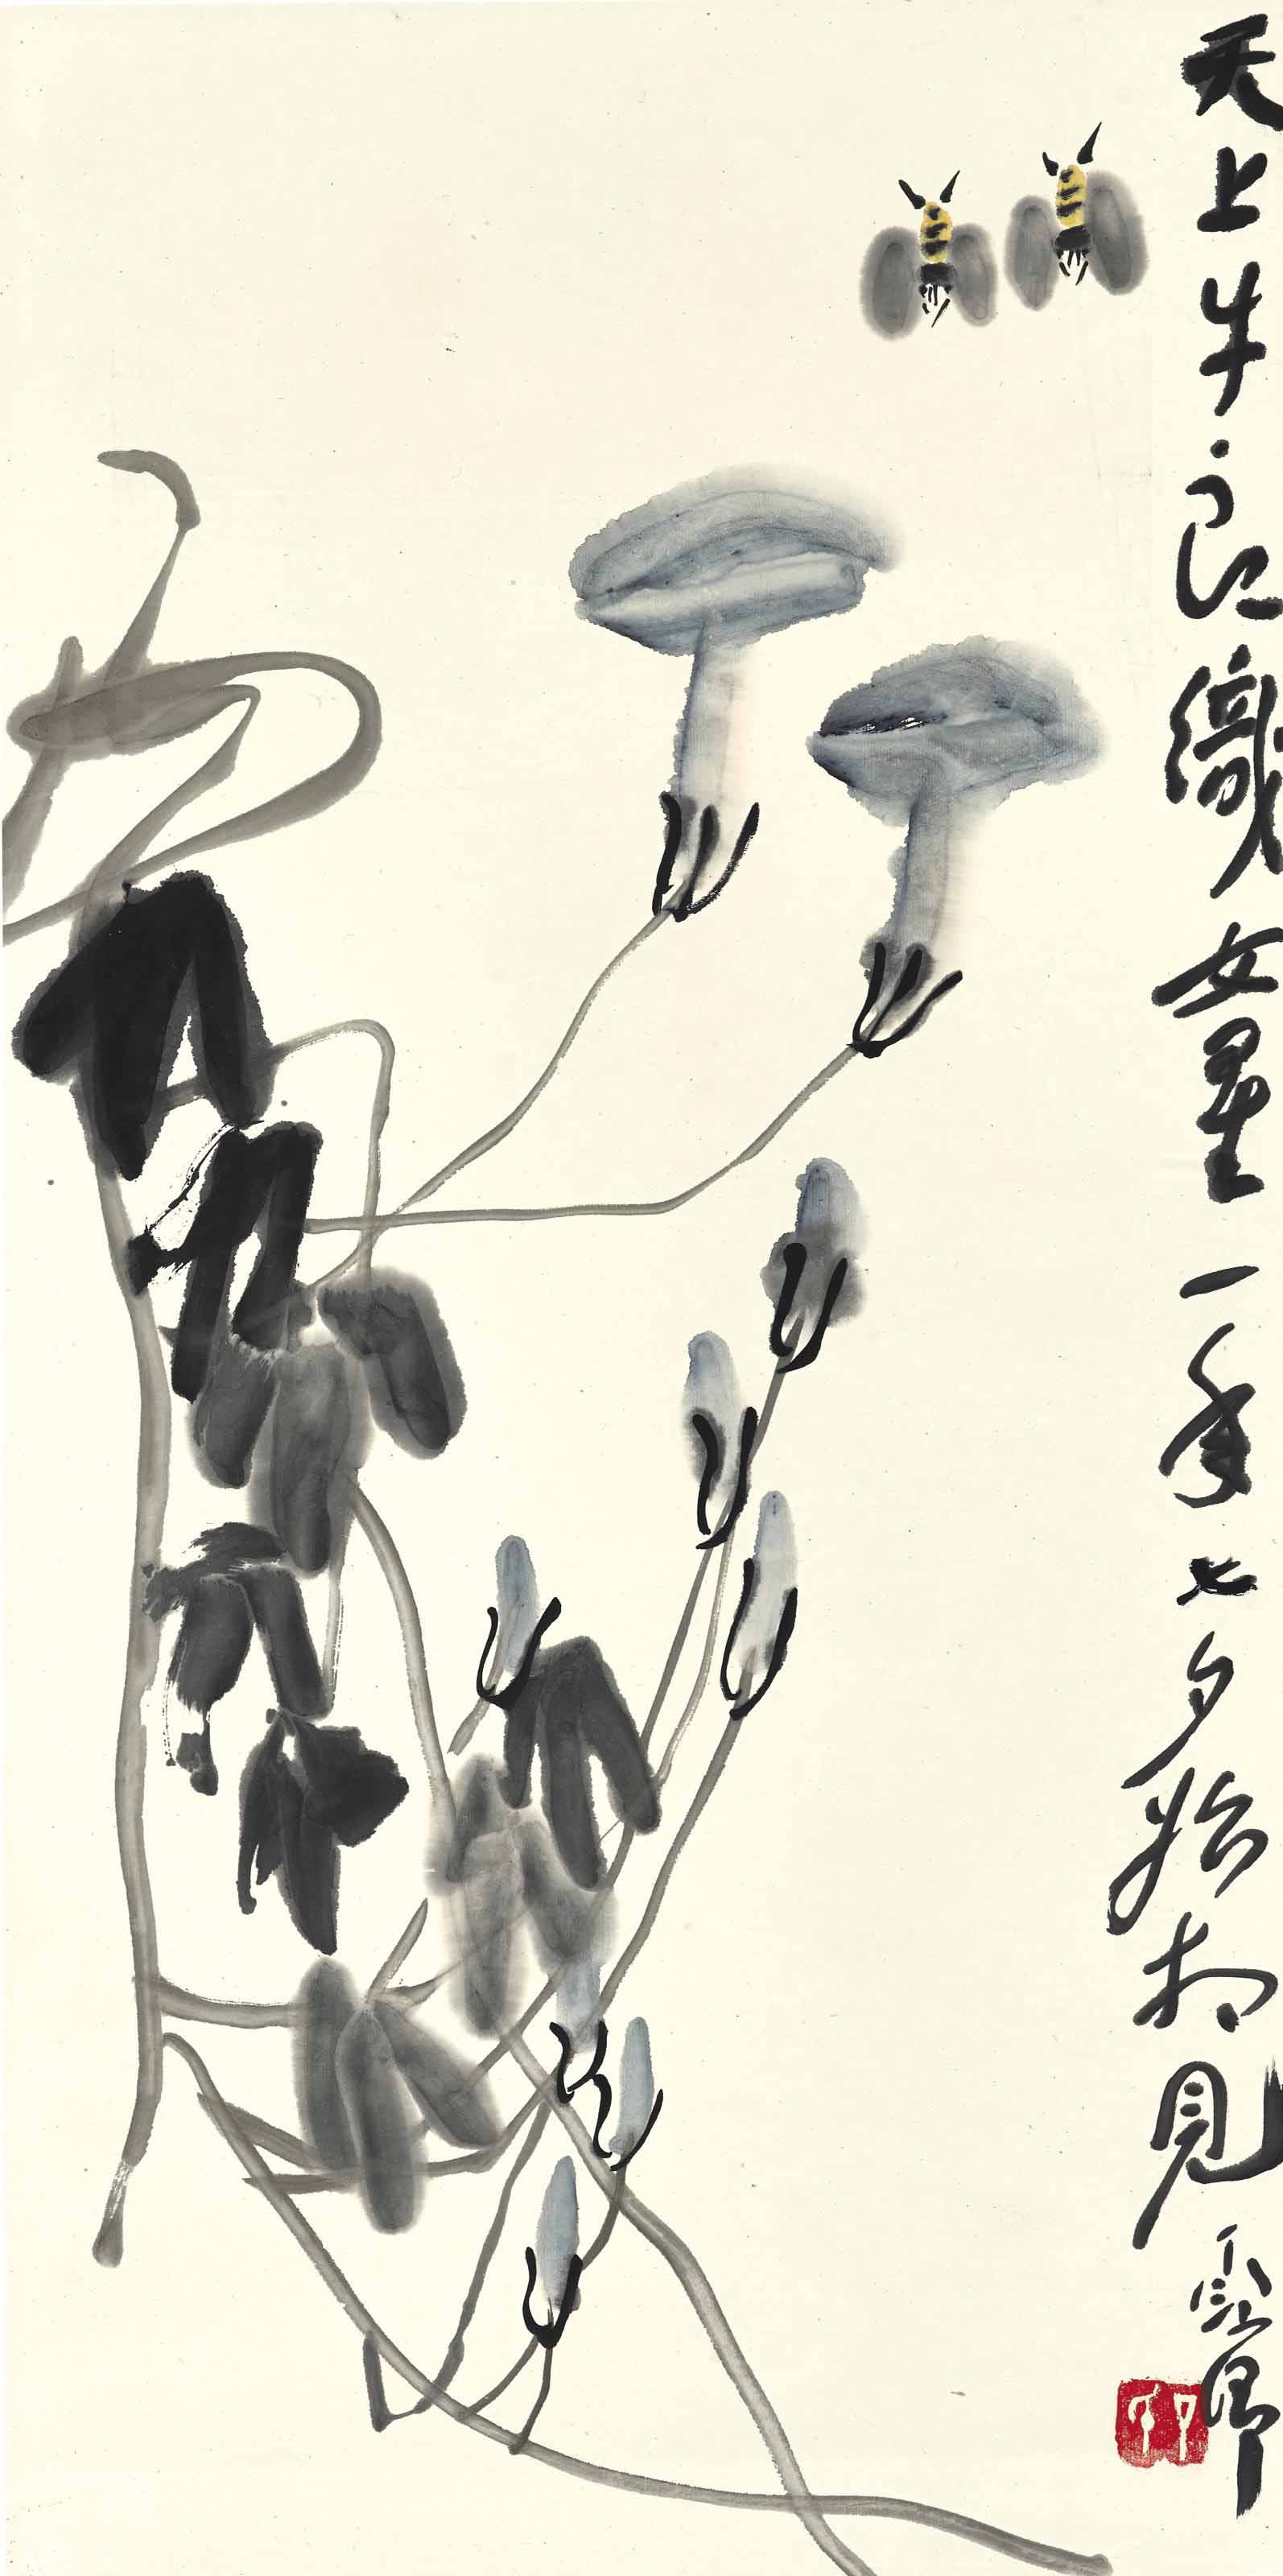 天上牛郎織女星一年七夕始相見丁衍庸